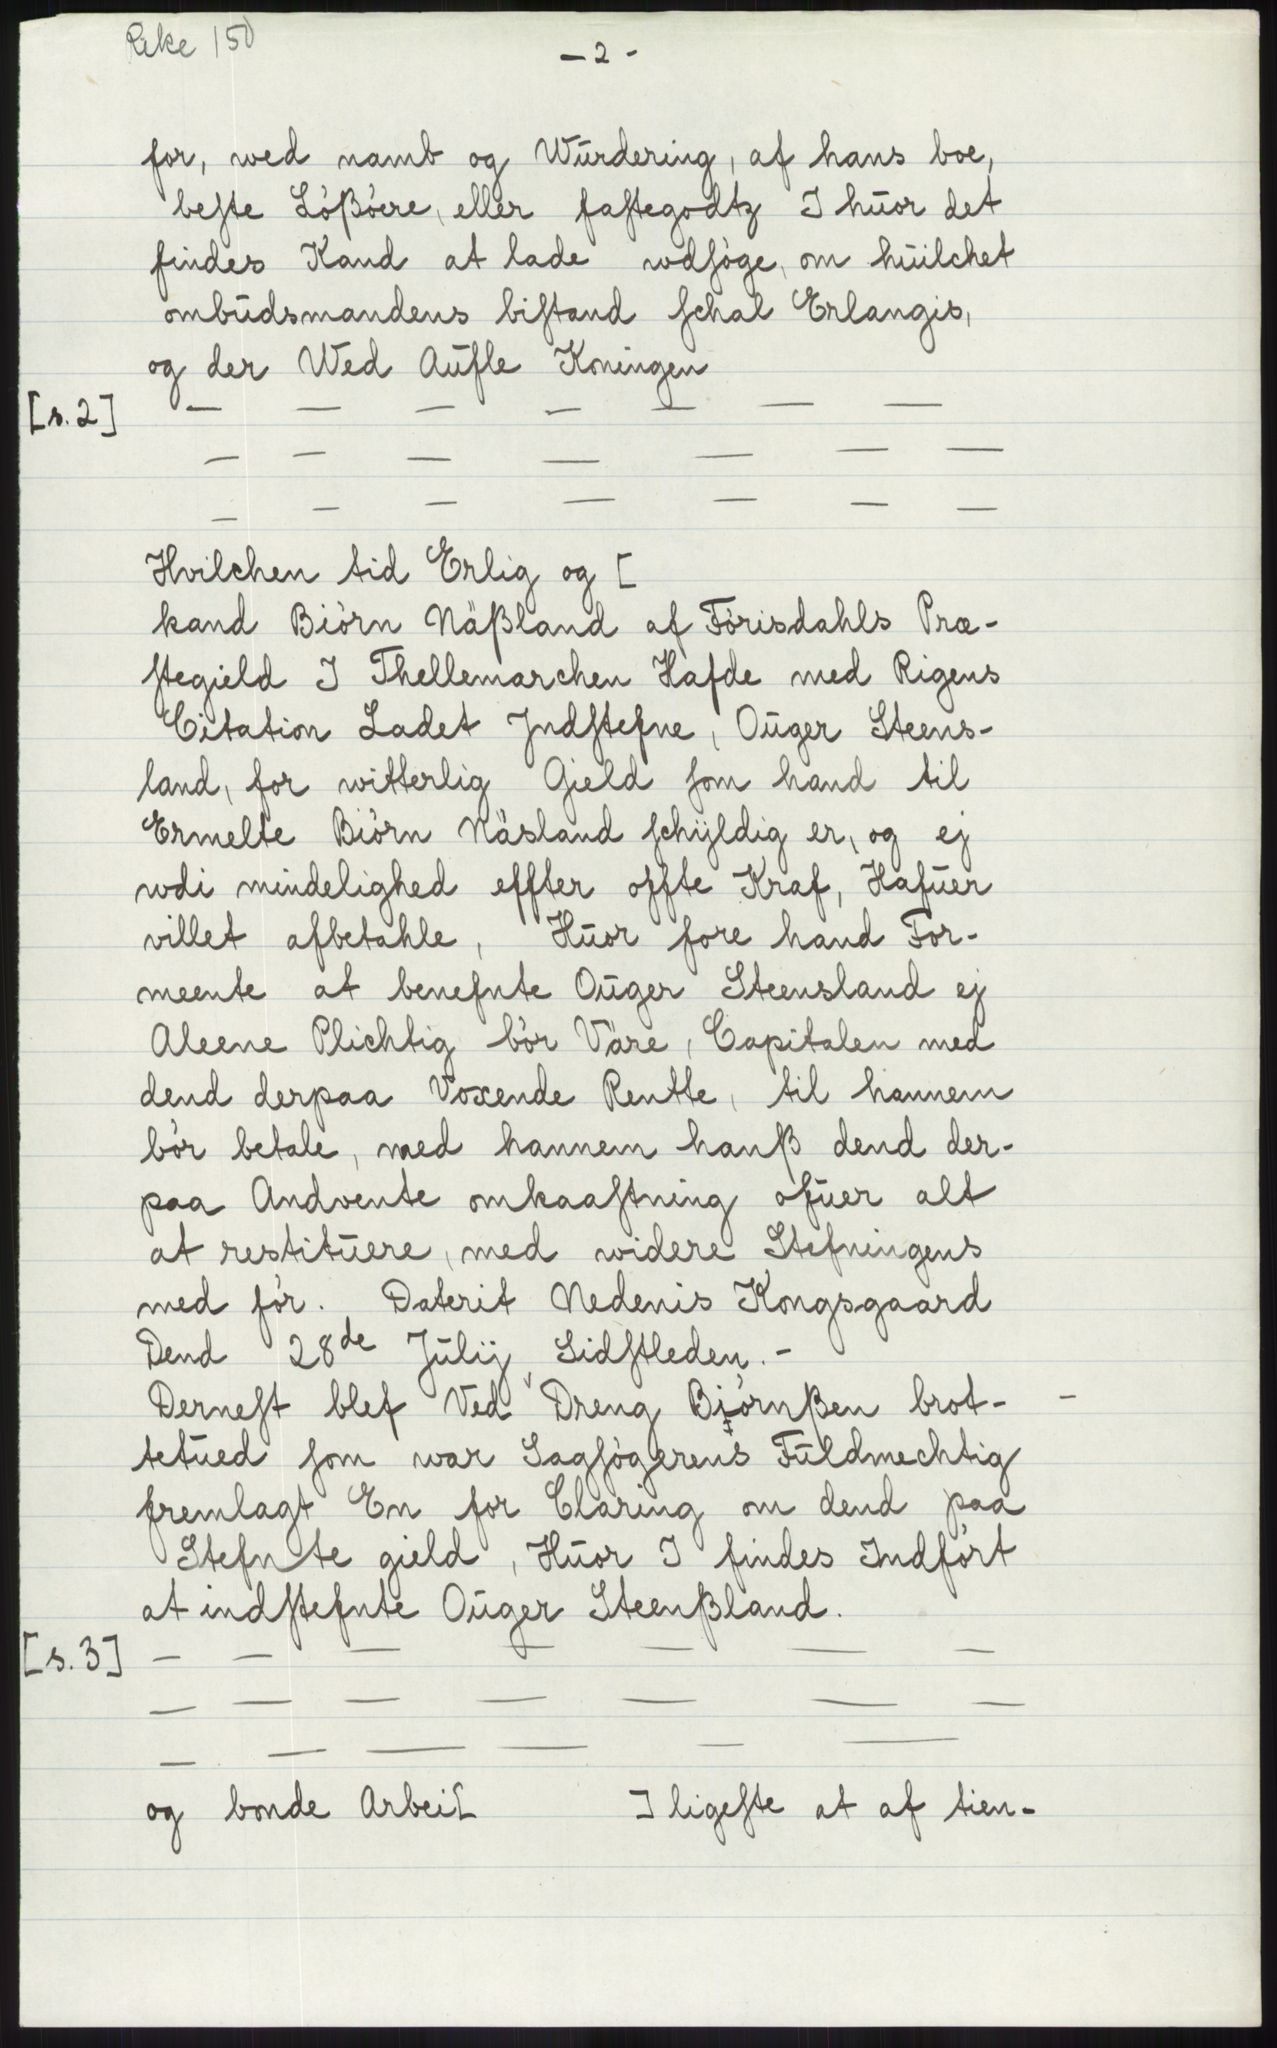 Reke 150
- 2 -
for, wed namb og Würdering, af hans boe,
beſte Lößöere, eller faſtegodtz I hüor det
findes Kand at lade wdſöge, om hüilchet
ombüdsmandens biſtand ſchal Erlangis,
og der Wed Aüfle Koningen
[s. 2] — — — — — — —
— — — — — — —
— — — — — — —
Hvilchen tid Erlig og [
kand Biörn Näßland af Förisdahls Præ-
ſtegield I Thellemarchen Hafde med Rigens
Citation Ladet Jndſtefne, Oüger Steens-
land, for witterlig Gield ſom hand til
Ermelte Biörn Näsland ſchÿldig er, og ej
wdi mindelighed effter offte Kraf, Hafüer
villet afbetahle, Hüor fore hand For-
meente at benefnte Oüger Steensland ej
Aleene Plichtig bör Väre, Capitalen med
dend derpaa Voxende Rentte, til hannem
bör betale, med hannem hanß dend der-
paa Andvente omkaaſtning ofüer alt
at restitüere, med widere Stefningens
med för. Daterit Nedenis Kongsgaard
Dend 28de Jülij Sidſtleden. -
Derneſt blef Ved Dreng Biörnßen brot- -
tetüed ſom war Sagſögerens Füldmechtig
fremlagt En for Claring om dend paa
Stefnte gield, Hüor I findes Indfört
at indſtefnte Oüger Steenßland.
[s. 3] — — — — — — —
— — — — — — —
— — — — — —
og bonde Arbei[ ] ligeſte at af tien-